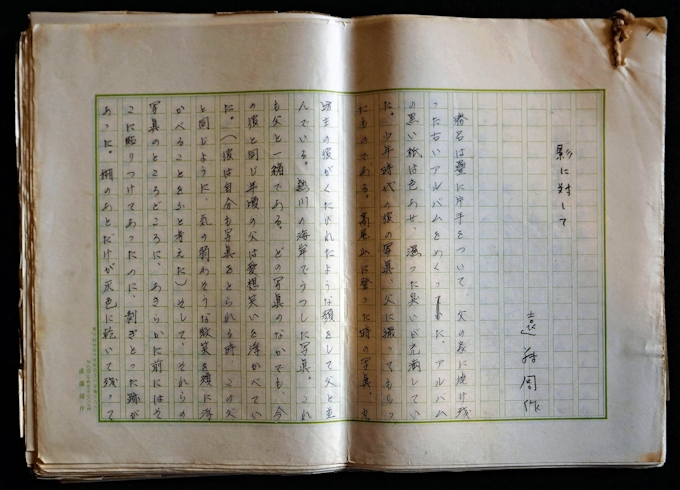 影に対して
遠藤周作
勝呂は畳に片手をついて、父の家に焼け残
った古いアルバムをめくった。アルバム
の黒い紙は色あせ、湿った臭いが充満してい
た。少年時代の彼の写真、父に撮ってもらっ
たものである。高尾山に登った時の写真、丸
坊主の彼がくたびれたような顔をして父と並
んでいる。熱川の海岸でうつした写真。これ
も父と一緒である。どの写真のなかでも、今
の彼と同じ年頃の父は愛想笑いを浮かべてい
た。(彼は自分も写真をとられる時、この父
と同じように、気の弱わそうな微笑を頬に浮
かべることをふと考えた)そして、それらの
写真のところどころに、あきらかに前にはそ
こに貼りつけてあったのに、剥ぎとった跡が
あった。糊のあとだけが灰色に乾いて残って